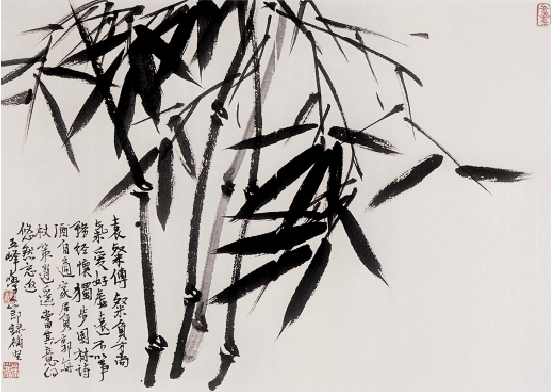 袁粲傳粲負才尚
氣愛好虛遠不以事
務經懷獨步園林詩
酒自適家居負郭每
杖策逍遙當其意得
悠然忘返
五峰
節錄